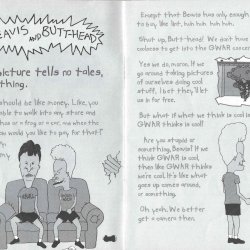 EAVIS AND BUTT-HEAD
picture tells no tales,
thing.
should be like money. Like, you
able to walk into any store and
a frog or a car, and when the
would you like to pay for that?"
Except that Beavis has only enough
to buy, like lint, huh huh huh.
Shut up, Butt-head! We don't have
coolness to get into the GWAR concert
Yes we do, moron. If we
go around taking pictures
of ourselves doing cool
stuff, I bet they'll let
us in for free.
But what if what we think is cool
GWAR thinks is cool?
Are you stupid or
something, Beavis? If we
think GWAR is cool,
then like GWAR thinks
we're cool. It's like what
goes up comes around,
or something.
Oh yeah. We better
get a camera then.